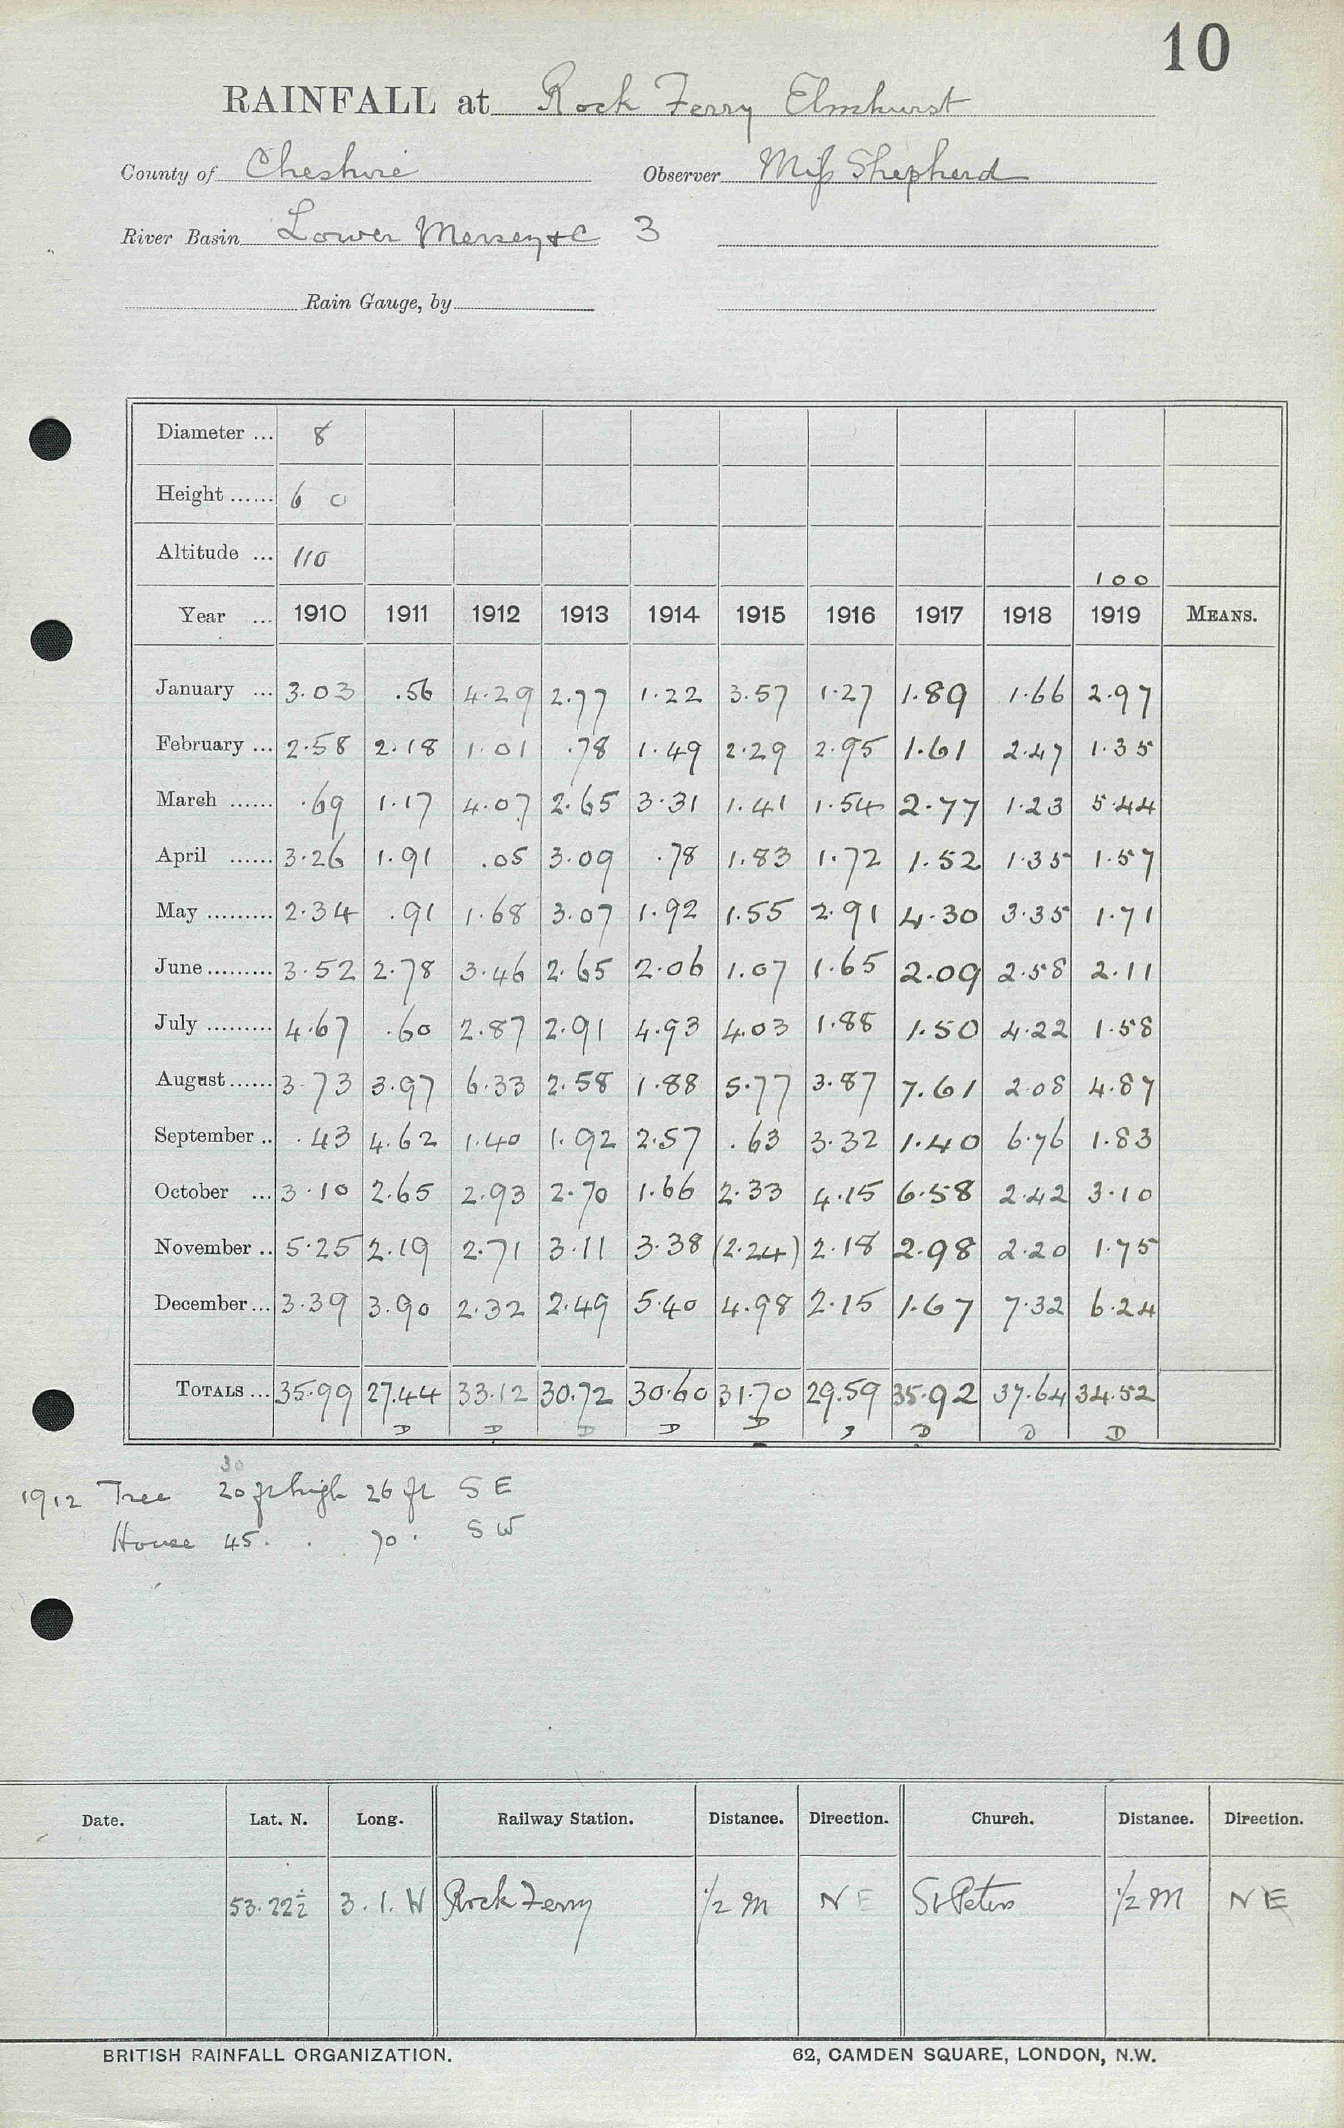 10
RAINFALL at Rock Ferry Elmhurst
County of Cheshire Observer Miss Shepherd
River Basin Lower Mersey &c 3
Rain Gauge, by
Diameter ... 8
Height ...... 6 0
Altitude ... 110 100
Year ... 1910 1911 1912 1913 1914 1915 1916 1917 1918 1919 MEANS.
January ... 3.03 .56 4.29 2.77 1.22 3.57 1.27 1.89 1.66 2.97
February ... 2.58 2.18 1.01 .78 1.49 2.29 2.95 1.61 2.47 1.35
March ...... .69 1.17 4.07 2.65 3.31 1.41 1.54 2.77 1.23 5.44
April ...... 3.26 1.91 .05 3.09 .78 1.83 1.72 1.52 1.35 1.57
May ......... 2.34 .91 1.68 3.07 1.92 1.55 2.91 4.30 3.35 1.71
June ......... 3.52 2.78 3.46 2.65 2.06 1.07 1.65 2.09 2.58 2.11
July ......... 4.67 .60 2.87 2.91 4.93 4.03 1.88 1.50 4.22 1.58
August ...... 3.73 3.97 6.33 2.58 1.88 5.77 3.87 7.61 2.08 4.87
September .. .43 4.62 1.40 1.92 2.57 .63 3.32 1.40 6.76 1.83
October ... 3.10 2.65 2.93 2.70 1.66 2.33 4.15 6.58 2.42 3.10
November .. 5.25 2.19 2.71 3.11 3.38 (2.24) 2.18 2.98 2.20 1.75
December ... 3.39 3.90 2.32 2.49 5.40 4.98 2.15 1.67 7.32 6.24
TOTALS ... 35.99 27.44 33.12 30.72 30.60 31.70 29.59 35.92 37.64 34.52
D D D D D D D D
30
1912 Tree 20 ft high 26 ft S E
House 45 . . 70 . S W
Date. Lat. N. Long. Railway Station. Distance. Direction. Church. Distance. Direction.
53.22½ 3.1.W Rock Ferry 1/2 m N E St Peters 1/2 m N E
BRITISH RAINFALL ORGANIZATION. 62, CAMDEN SQUARE, LONDON, N.W.